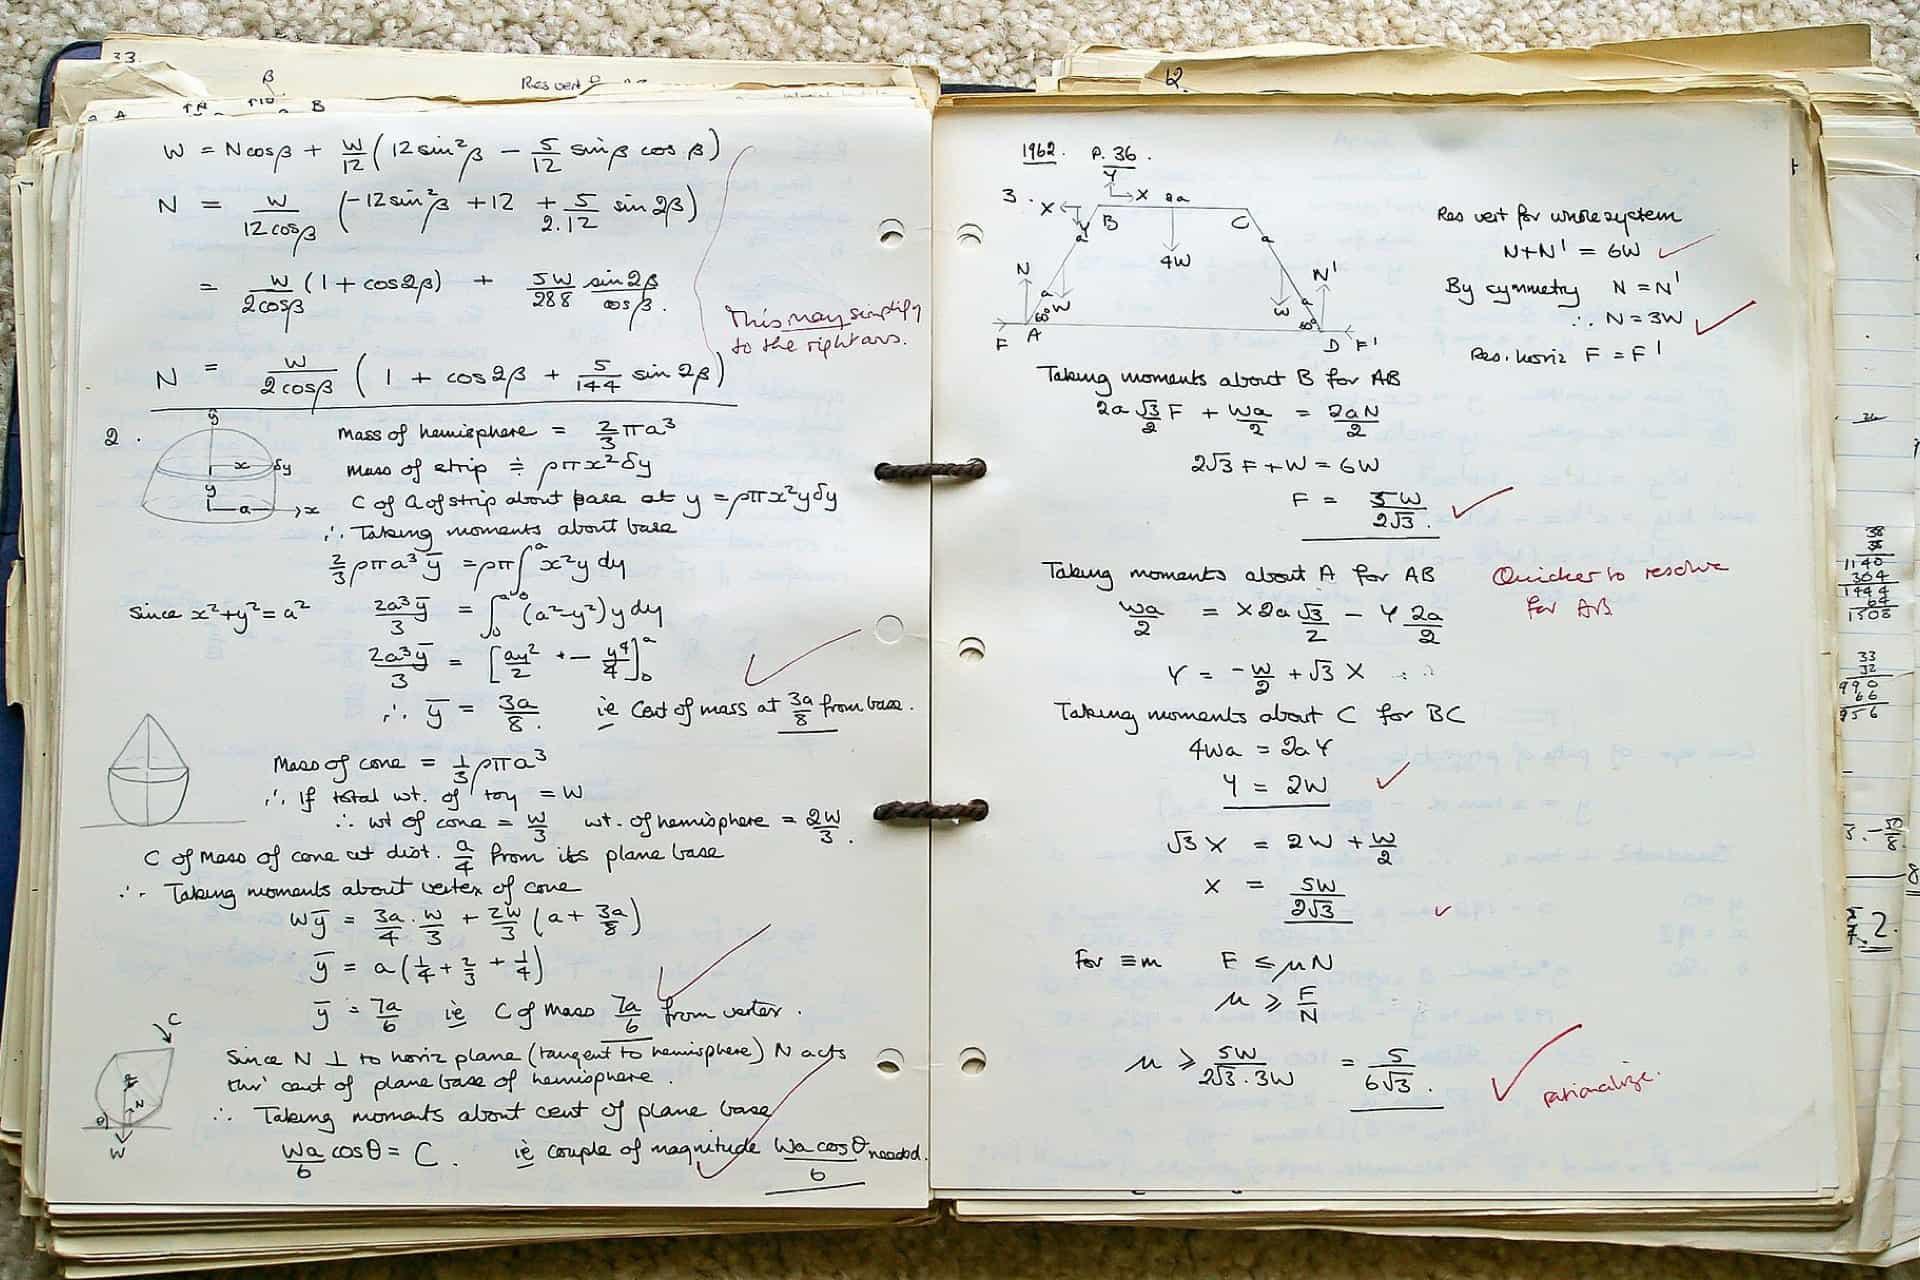 33.
β
Res vert f
A B
W = N cosβ + W/12 (12 sin²β − 5/12 sinβ cos β)
N = W/12cosβ (−12 sin²β + 12 + 5/2.12 sin 2β)
= W/2cosβ (1 + cos2β) + 5W/288 sin2β/cosβ.
This may simplify
to the right ans.
N = W/2cosβ (1 + cos2β + 5/144 sin 2β)
2.
y
x δy
y
a x
Mass of hemisphere = 2/3 πa³
mass of strip ≑ ρπx²δy
C of G of strip about base at y = ρπx²yδy
∴ Taking moments about base
2/3 ρπa³ȳ = ρπ∫₀ᵃ x²y dy
Since x²+y²=a² 2a³ȳ/3 = ∫₀ᵃ (a²−y²) y dy
2a³ȳ/3 = [ay²/2 − y⁴/4]₀ᵃ
∴ ȳ = 3a/8. ie Cent of mass at 3a/8 from base.
Mass of cone = 1/3 ρπa³
∴ If total wt. of toy = W
∴ wt of cone = W/3 wt. of hemisphere = 2W/3.
C of Mass of cone at dist. a/4 from its plane base
∴ Taking moments about vertex of cone
Wȳ = 3a/4 . W/3 + 2W/3 (a + 3a/8)
ȳ = a(1/4 + 2/3 + 1/4)
ȳ = 7a/6 ie C of Mass 7a/6 from vertex.
C
N
θ
W
Since N ⊥ to horiz plane (tangent to hemisphere) N acts
thro' cent of plane base of hemisphere.
∴ Taking moments about cent of plane base
Wa/6 cosθ = C. ie couple of magnitude Wa cosθ/6 needed.
12.
1962. P. 36.
3.
Y
X X 2a
B C
Y a a
4W
N N'
a W W a
60° 60°
F A D F'
Res vert for whole system
N+N' = 6W
By symmetry N = N'
∴ N = 3W
Res. horiz F = F'
Taking moments about B for AB
2a √3/2 F + Wa/2 = 2aN/2
2√3 F + W = 6W
F = 5W/2√3.
Taking moments about A for AB
Quicker to resolve
for AB
Wa/2 = X 2a √3/2 − Y 2a/2
Y = −W/2 + √3 X
Taking moments about C for BC
4Wa = 2aY
Y = 2W
√3 X = 2W + W/2
X = 5W/2√3
For ≡m F ≤ μN
μ ≥ F/N
μ ≥ 5W/2√3.3W = 5/6√3.
rationalize.
38
38
1140
304
1444
64
1508
33
32
990
66
956
2.